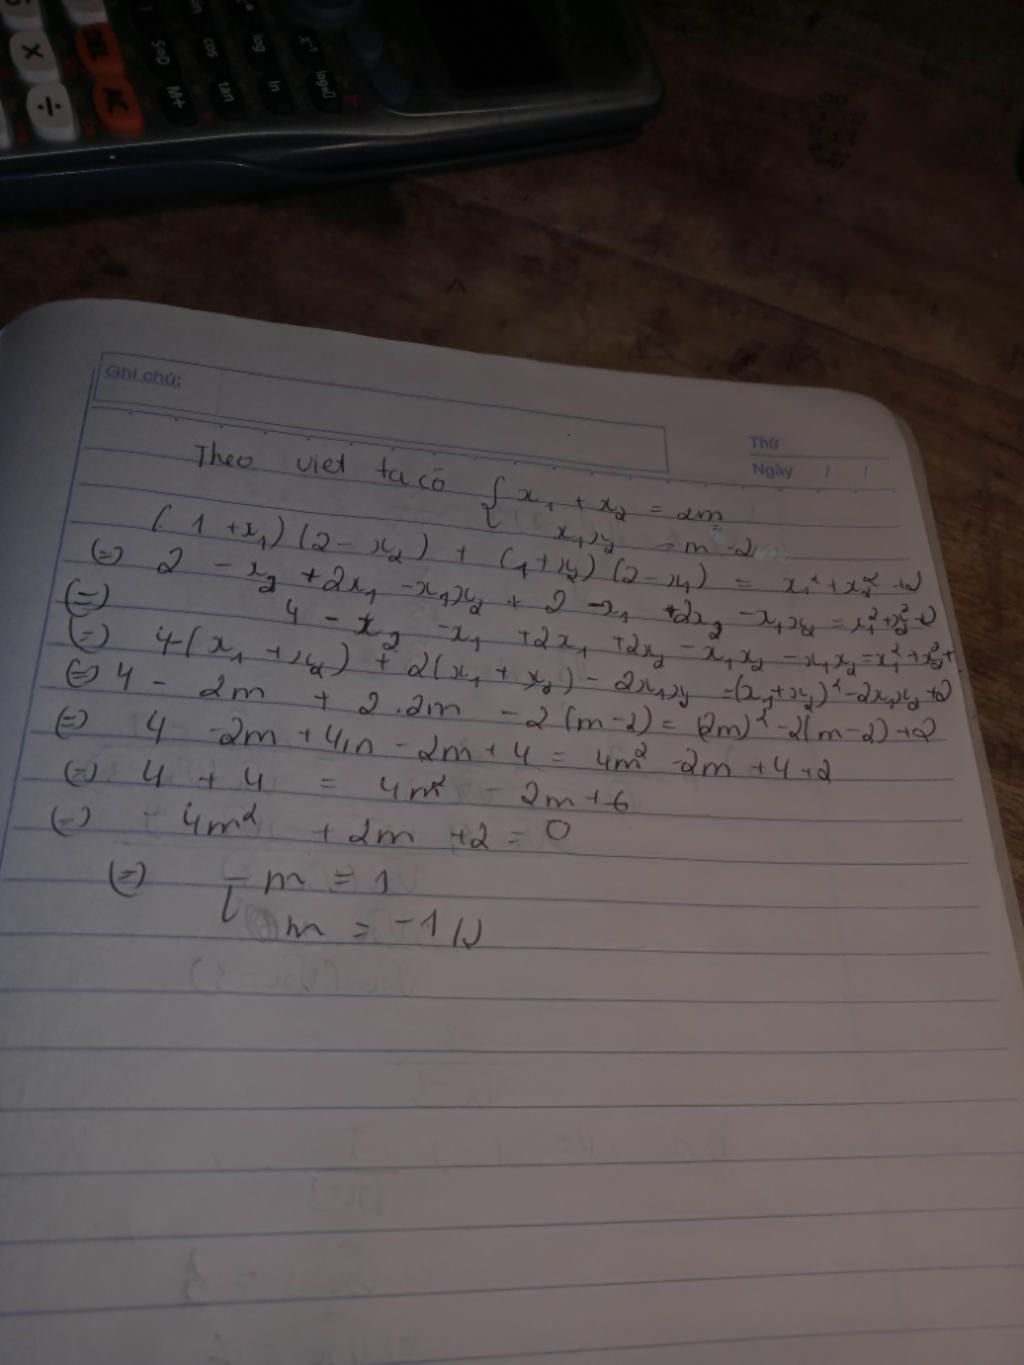 DEL AC
× ÷
S⇔D M+
sin cos tan
log ln
x⁻¹ log
Ghi chú:
Thứ
Ngày / /
Theo viet ta có { x₁ + x₂ = 2m
x₁x₂ = m - 2
(1 + x₁)(2 - x₂) + (1 + x₂)(2 - x₁) = x₁² + x₂² + 2
(=) 2 - x₂ + 2x₁ - x₁x₂ + 2 - x₁ + 2x₂ - x₁x₂ = x₁² + x₂² + 2
(=) 4 - x₂ - x₁ + 2x₁ + 2x₂ - x₁x₂ - x₁x₂ = x₁² + x₂² +
(=) 4 - (x₁ + x₂) + 2(x₁ + x₂) - 2x₁x₂ = (x₁ + x₂)² - 2x₁x₂ + 2
(=) 4 - 2m + 2.2m - 2(m-2) = (2m)² - 2(m-2) + 2
(=) 4 - 2m + 4m - 2m + 4 = 4m² - 2m + 4 + 2
(=) 4 + 4 = 4m² - 2m + 6
(=) - 4m² + 2m + 2 = 0
(=) [ m = 1
m = -1/2